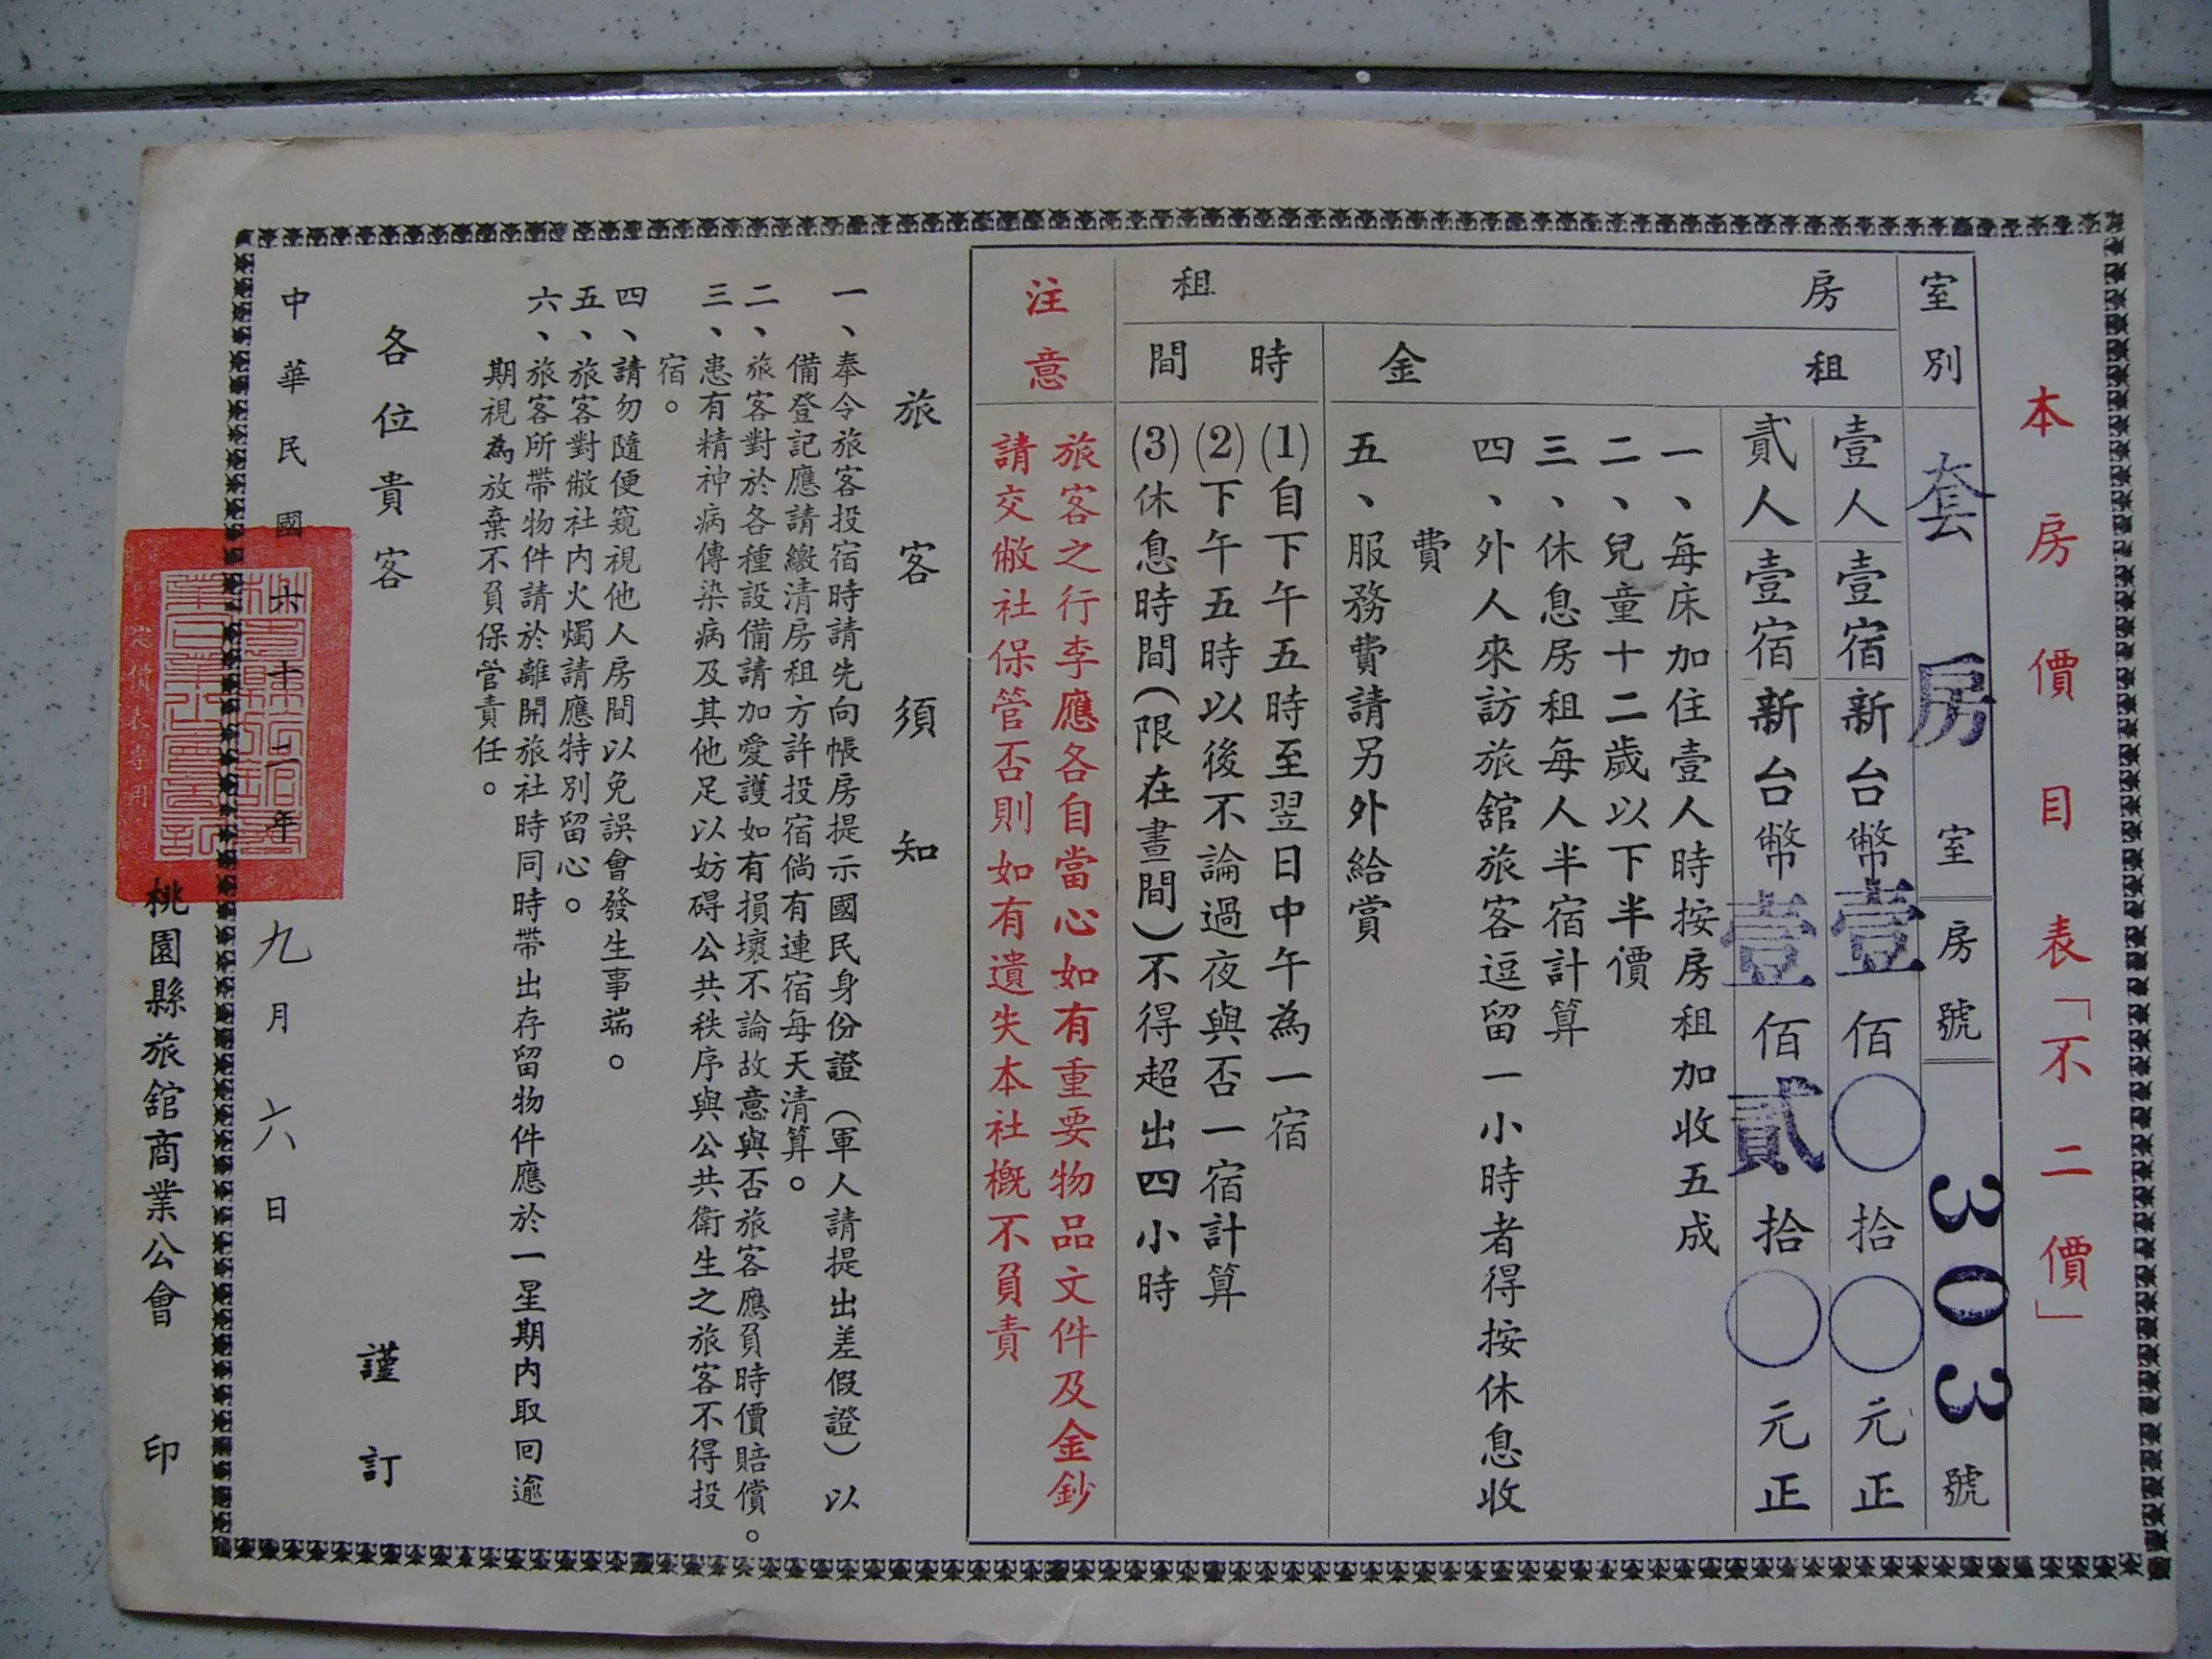 本房價目表「不二價」
室別
套房室
房號
303號
房租
租金
壹人壹宿新台幣壹佰〇拾〇元正
貳人壹宿新台幣壹佰貳拾〇元正
一、每床加住壹人時按房租加收五成
二、兒童十二歲以下半價
三、休息房租每人半宿計算
四、外人來訪旅舘旅客逗留一小時者得按休息收
費
五、服務費請另外給賞
時間
(1)自下午五時至翌日中午為一宿
(2)下午五時以後不論過夜與否一宿計算
(3)休息時間(限在晝間)不得超出四小時
注意
旅客之行李應各自當心如有重要物品文件及金鈔
請交敝社保管否則如有遺失本社概不負責
旅客須知
一、奉令旅客投宿時請先向帳房提示國民身份證(軍人請提出差假證)以
備登記應請繳清房租方許投宿倘有連宿每天清算。
二、旅客對於各種設備請加愛護如有損壞不論故意與否旅客應負時價賠償。
三、患有精神病傳染病及其他足以妨碍公共秩序與公共衛生之旅客不得投
宿。
四、請勿隨便窺視他人房間以免誤會發生事端。
五、旅客對敝社內火燭請應特別留心。
六、旅客所帶物件請於離開旅社時同時帶出存留物件應於一星期內取回逾
期視為放棄不負保管責任。
各位貴客
謹訂
中華民國六十二年九月六日
定價表專用
桃園縣旅舘商業公會印